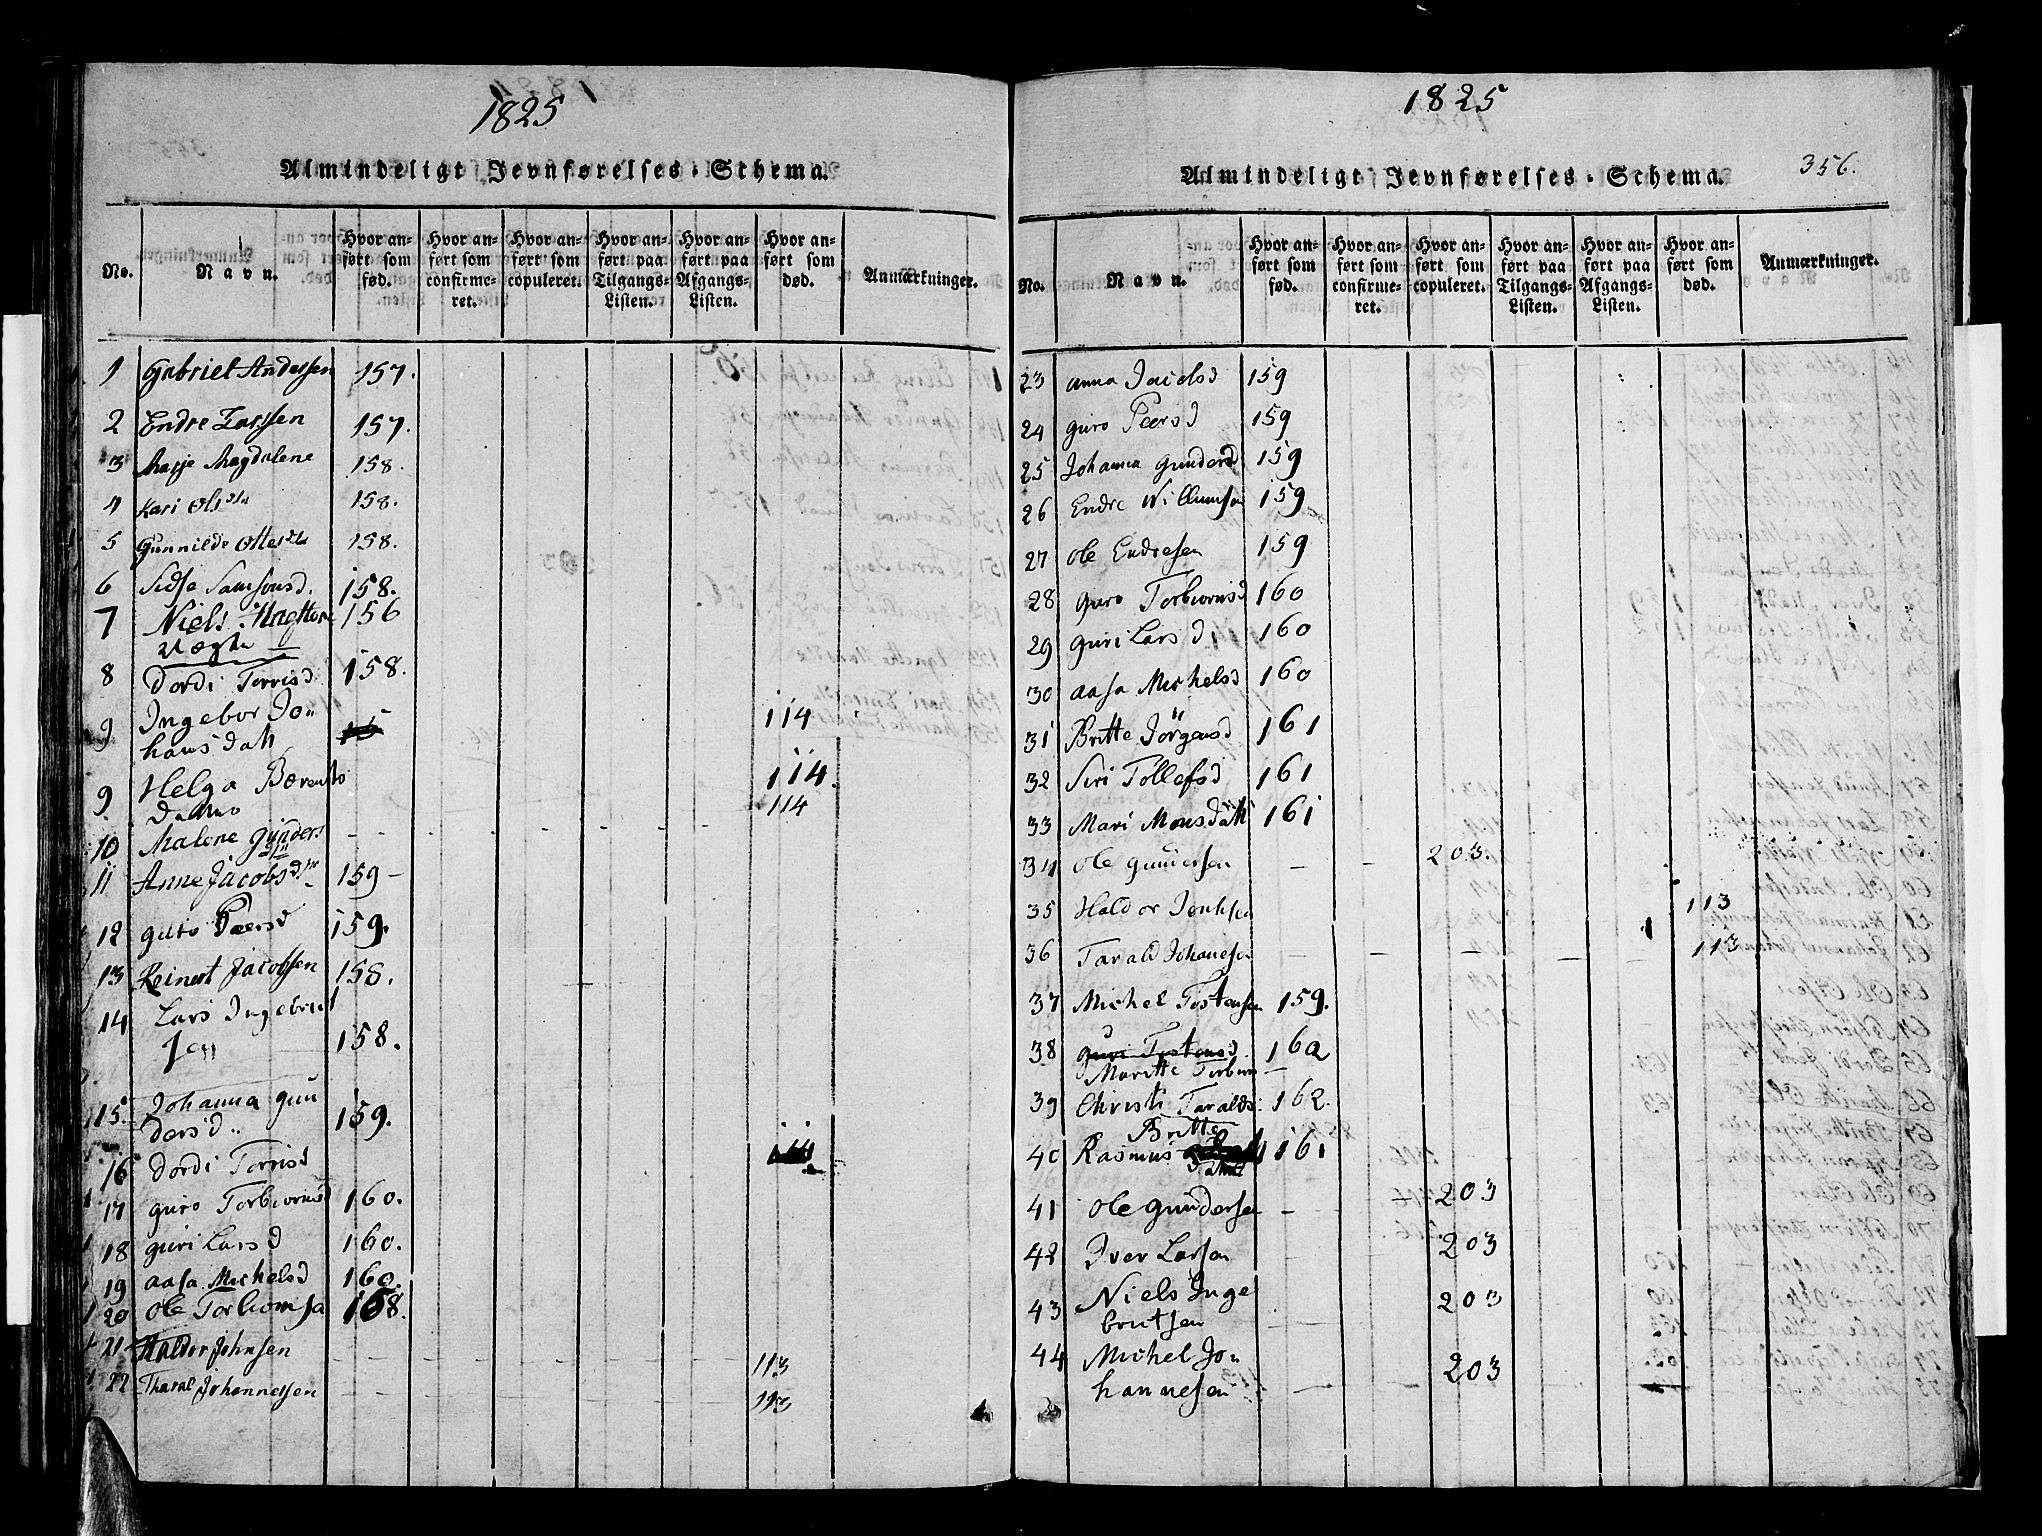 1825
Almindeligt Jevnførelses-Schema.
No. Navn. Hvor anført som fød. Hvor anført som confirmeret. Hvor anført som copuleret. Hvor anført paa Tilgangs-Listen. Hvor anført paa Afgangs-Listen. Hvor anført som død. Anmærkninger.
1 Gabriel Andersen 157.
2 Endre Larssen 157.
3 Magdalene 158.
4 Kari Olsdtr 158.
5 Gunnilde Ottesdtr 158.
6 Sidse Samsonsd. 158.
7 Niels 156
8 Dordi Torrisd 158.
9 Ingebor Jo-
hansdatt 114
9 Helga 114.
114
10 Malene Gunders
dtr - -
11 Anne Jacobsdtr 159 -
12 guro Peersd 159.
13 Reinert Jacobsen 158.
14 Lars Ingebrict
sen 158.
15 Johanna gun
dersd.. 159.
16 Dordi Torrisd
17 guro Torbiornsd 160.
18 guri Larsd 160.
19 aasa Michelsd 160.
20 Ole Torbiornsa 158.
21 Haldor Johnsen - - - - 113
22 Tharal Johannessen - - - - 113
1825
356.
Almindeligt Jevnførelses-Schema.
No. Navn. Hvor anført som fød. Hvor anført som confirmeret. Hvor anført som copuleret. Hvor anført paa Tilgangs-Listen. Hvor anført paa Afgangs-Listen. Hvor anført som død. Anmærkninger.
23 anna Jacobsd 159
24 guro Peersd 159
25 Johanna Gundersd 159
26 Endre Willumsen 159
27 Ole Endresen 159
28 guro Torbiornsd 160
29 guri Larsd 160
30 aasa Michelsd 160
31 Britte Jörgensd 161
32 Siri Tollefsd 161
33 Mari Monsdatt 161
34 Ole gundersen - - 203.
35 Haldor Jonhsen 113
36 Tarald Johanesen - - - - - 113
37 Michel Tostensen 159.
38 guri Tostensd. 162
Maritte Torbiorn
39 Christi Taralds: 162.
Britte
40 Rasmus 161
datter
41 Ole gundersen - 203
42 Iver Larsen 203
43 Niels Inge
britsen 203
44 Michel Jo-
hannesen 203